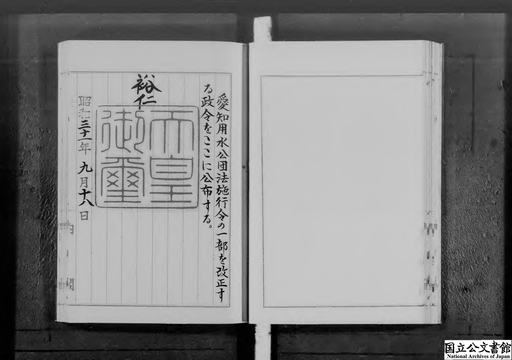 愛知用水公団法施行令の一部を改正す
る政令をここに公布する。
裕仁
天皇
御璽
昭和三十一年九月十八日
国立公文書館
National Archives of Japan